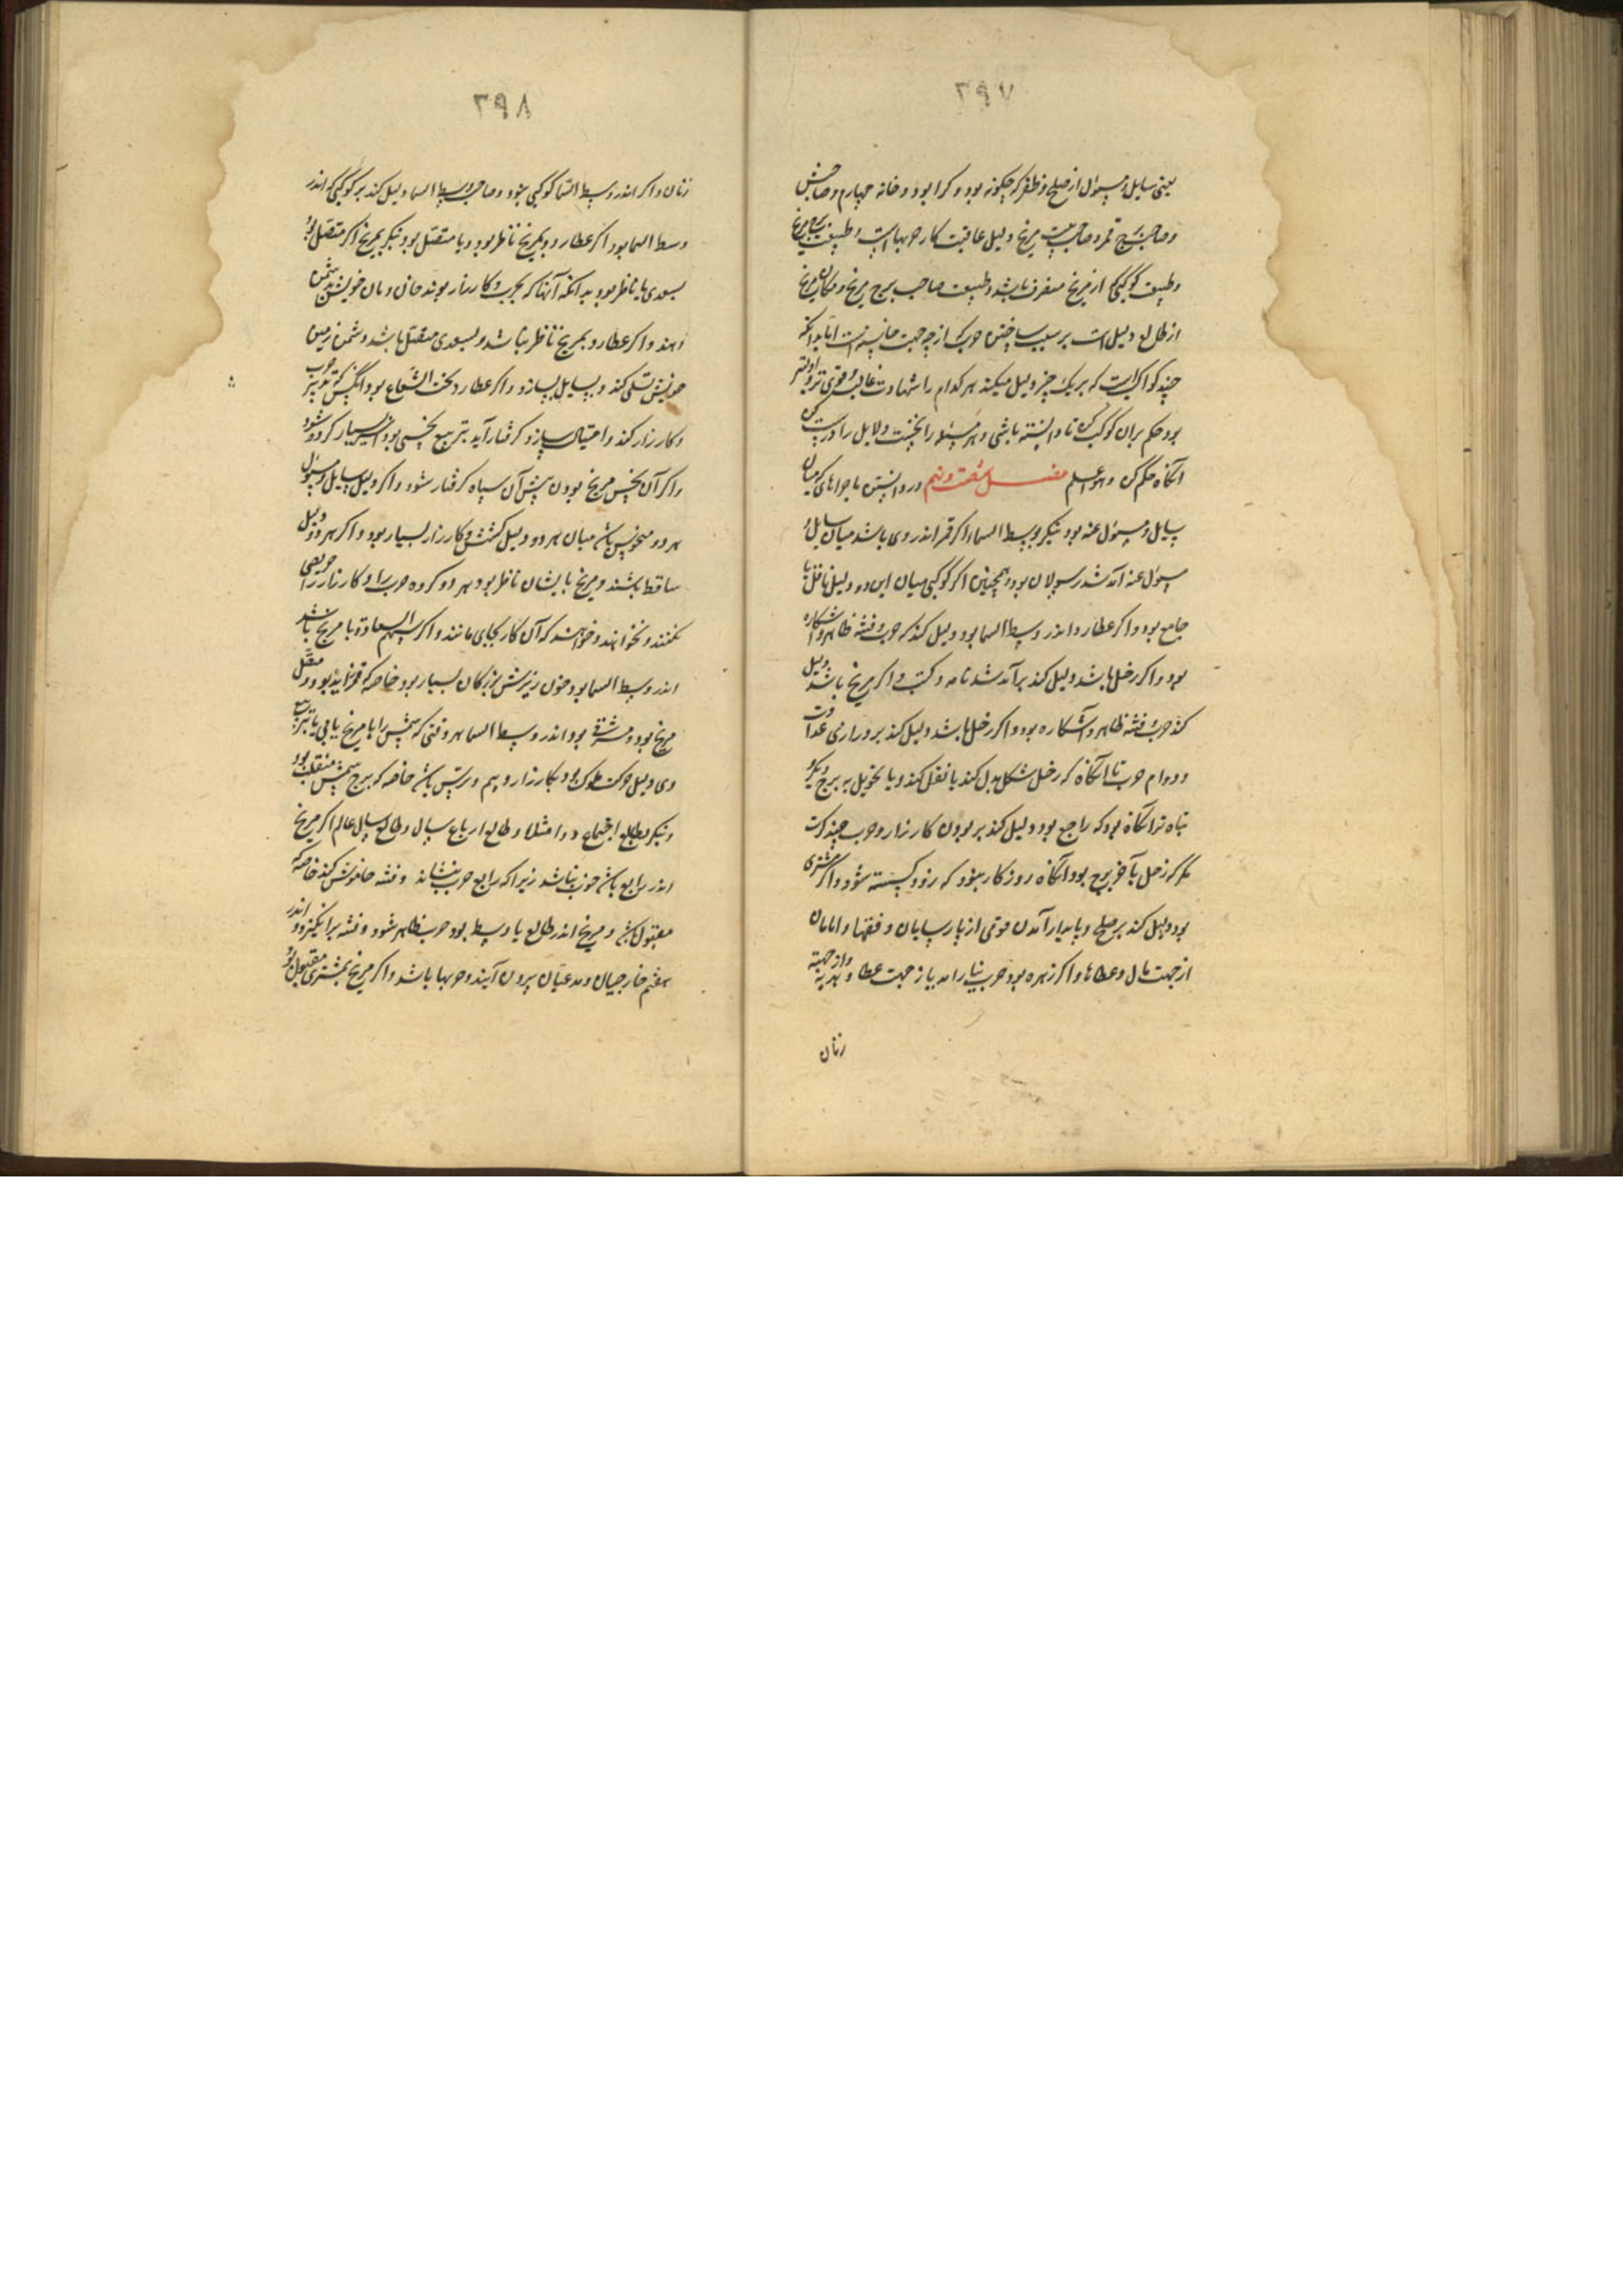 ٢٩٧
یعنی سایل و مسئول از صلح و ظفر که چگونه بود و کرا بود و خانه چهارم و صاحبش
و صاحب برج قمر و صاحب بیت مریخ دلیل عاقبت کار حربهاست و طبیعت برج مریخ
و طبیعت کوکبی که از مریخ منصرف باشد و طبیعت صاحب برج مریخ و مکان مریخ
از طالع دلیل است بر سبب ساختن حرب که از چه جهت خاسته است اما بدانکه
چند کواکب است که بر یک چیز دلیل میکند هر کدام را شهادت غالب و قوی تر و اولیتر
بود حکم بران کوکب کن تا دانسته باشی و هر مسئله را نخست دلایل را درست کن
آنگاه حکم کن واله اعلم فصل هفت و نهم در دانستن ماجراهای که میان
سایل و مسئول عنه بود بنگر بوسط السماء اکر قمر اندر وی باشد میان سایل و
مسئول عنه آمد شد رسولان بود و همچنین اکر کوکبی میان این دو دلیل ناقل یا
جامع بود و اکر عطارد اندر وسط السما بود دلیل کند که حرب و فتنه ظاهر و آشکاره
بود و اکر زحل باشد دلیل کند بر آمد شد نامه و کتب و اکر مریخ باشد دلیل
کند حرب و فتنه ظاهر و آشکاره بود و اکر زحل باشد دلیل کند بر درازی عداوت
و دوام حرب تا آنگاه که زحل شکل بدل کند یا نقل کند و یا تحویل به برج دیگر و
تباه تر آنگاه بود که راجع بود دلیل کند بر بودن کارزار و حرب چند کرت
مگر که زحل بآخر برج بود آنگاه روزکار بنود که زود کسسته شود و اکر مشتری
بود دلیل کند بر صلح و پدیدار آمدن قومی از پارسایان و فقها و امامان
از جهت مال و عطاها و اکر زهره بود حرب نیارامد یا از جهت عطا و هدیه و از جهة
زنان
٢٩٨
زنان و اکر اندر وسط السما کوکبی بنود و صاحب وسط السما دلیل کند بر کوکبی که اندر
وسط السما بود اکر عطارد بود بمریخ ناظر بود و یا متصل بود بنگر بمریخ اکر متصل بود
بسعدی یا ناظر بود بدانکه آنها که بحرب و کارزار بوند جان و مان خویش بدشمن
دهند و اکر عطارد بمریخ ناظر نباشد و بسعدی متصل باشد دشمن زمین
خویش تسلیم کند و بسایل بسازد و اکر عطارد تحت الشعاع بود آنکس که تدبیر حرب
و کارزار کند و احتیال سازد کرفتار آید بتربیع نحسی بود اسیر بسیار کرده شود
و اکر آن نحس مریخ بود پیش آن سپاه کرفتار شود و اکر دلیل سایل و مسئول
هر دو منحوس باشد میان هر دو دلیل کشش و کارزار بسیار بود و اکر هر دو دلیل
ساقط باشند و مریخ بایشان ناظر بود هر دو کروه حرب را و کارزار را حریصی
نکنند و نخواهند و خواهند که آن کار بجای مانند و اکر سهم السعادة با مریخ باشد
اندر وسط السما بود خون ریزش بزرکان بسیار بود خاصه که قمر زاید بود و متصل
مریخ بود و مشرق بود اندر وسط السما هر وقتی که شمس را با مریخ یابی یا بتربیع
وی دلیل حرکت ملوک بود بکارزار و بیم و ترس باشد خاصه که برج شمس منقلب بود
و بنگر بطالع اجتماع و امتلا و طالع ارباع سال و طالع سال عالم اکر مریخ
اندر رابع باشد حرب نباشد زیرا که رابع حرب بنشاند و فتنه خاموش کند خاصه که
مقبول باشد و مریخ اندر طالع یا وسط بود حرب ظاهر شود و فتنه برانگیزد و اندر
هفتم خارجیان و مدعیان بیرون آیند و حربها باشد و اکر مریخ بمشتری مقبول بود